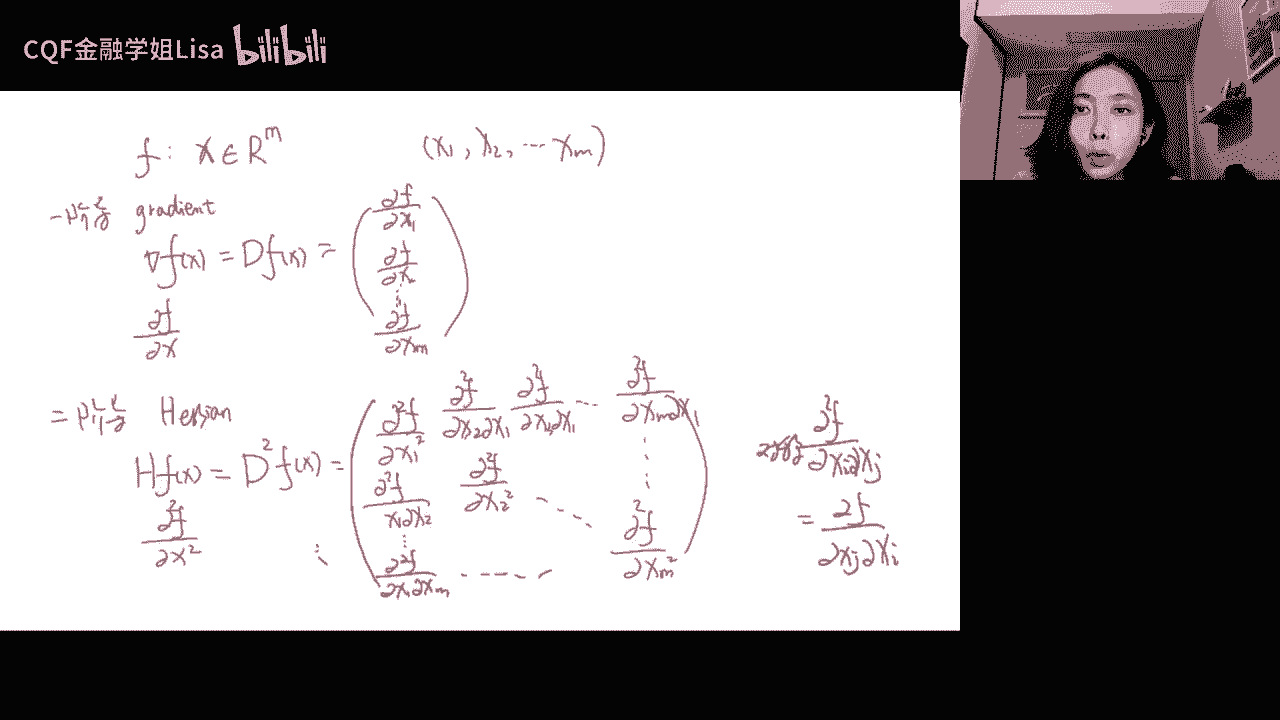 CQF金融学姐Lisa bilibili
f: x ∈ R^m (x₁, x₂, ... xₘ)
一阶 gradient
∇f(x) = Df(x) = ( ∂f/∂x₁ ∂f/∂x₂ ⋮ ∂f/∂xₘ )
∂f/∂x
二阶 Hessian
Hf(x) = D²f(x) =
∂²f/∂x²
∂²f/∂x₁² ∂²f/∂x₂∂x₁ ... ∂²f/∂xₘ∂x₁
∂²f/x₁∂x₂ ∂²f/∂x₂² ⋱ ⋮
⋮
∂²f/∂x₁∂xₘ ------ ∂²f/∂xₘ²
∂²f/∂xᵢ∂xⱼ
= ∂f/∂xⱼ∂xᵢ